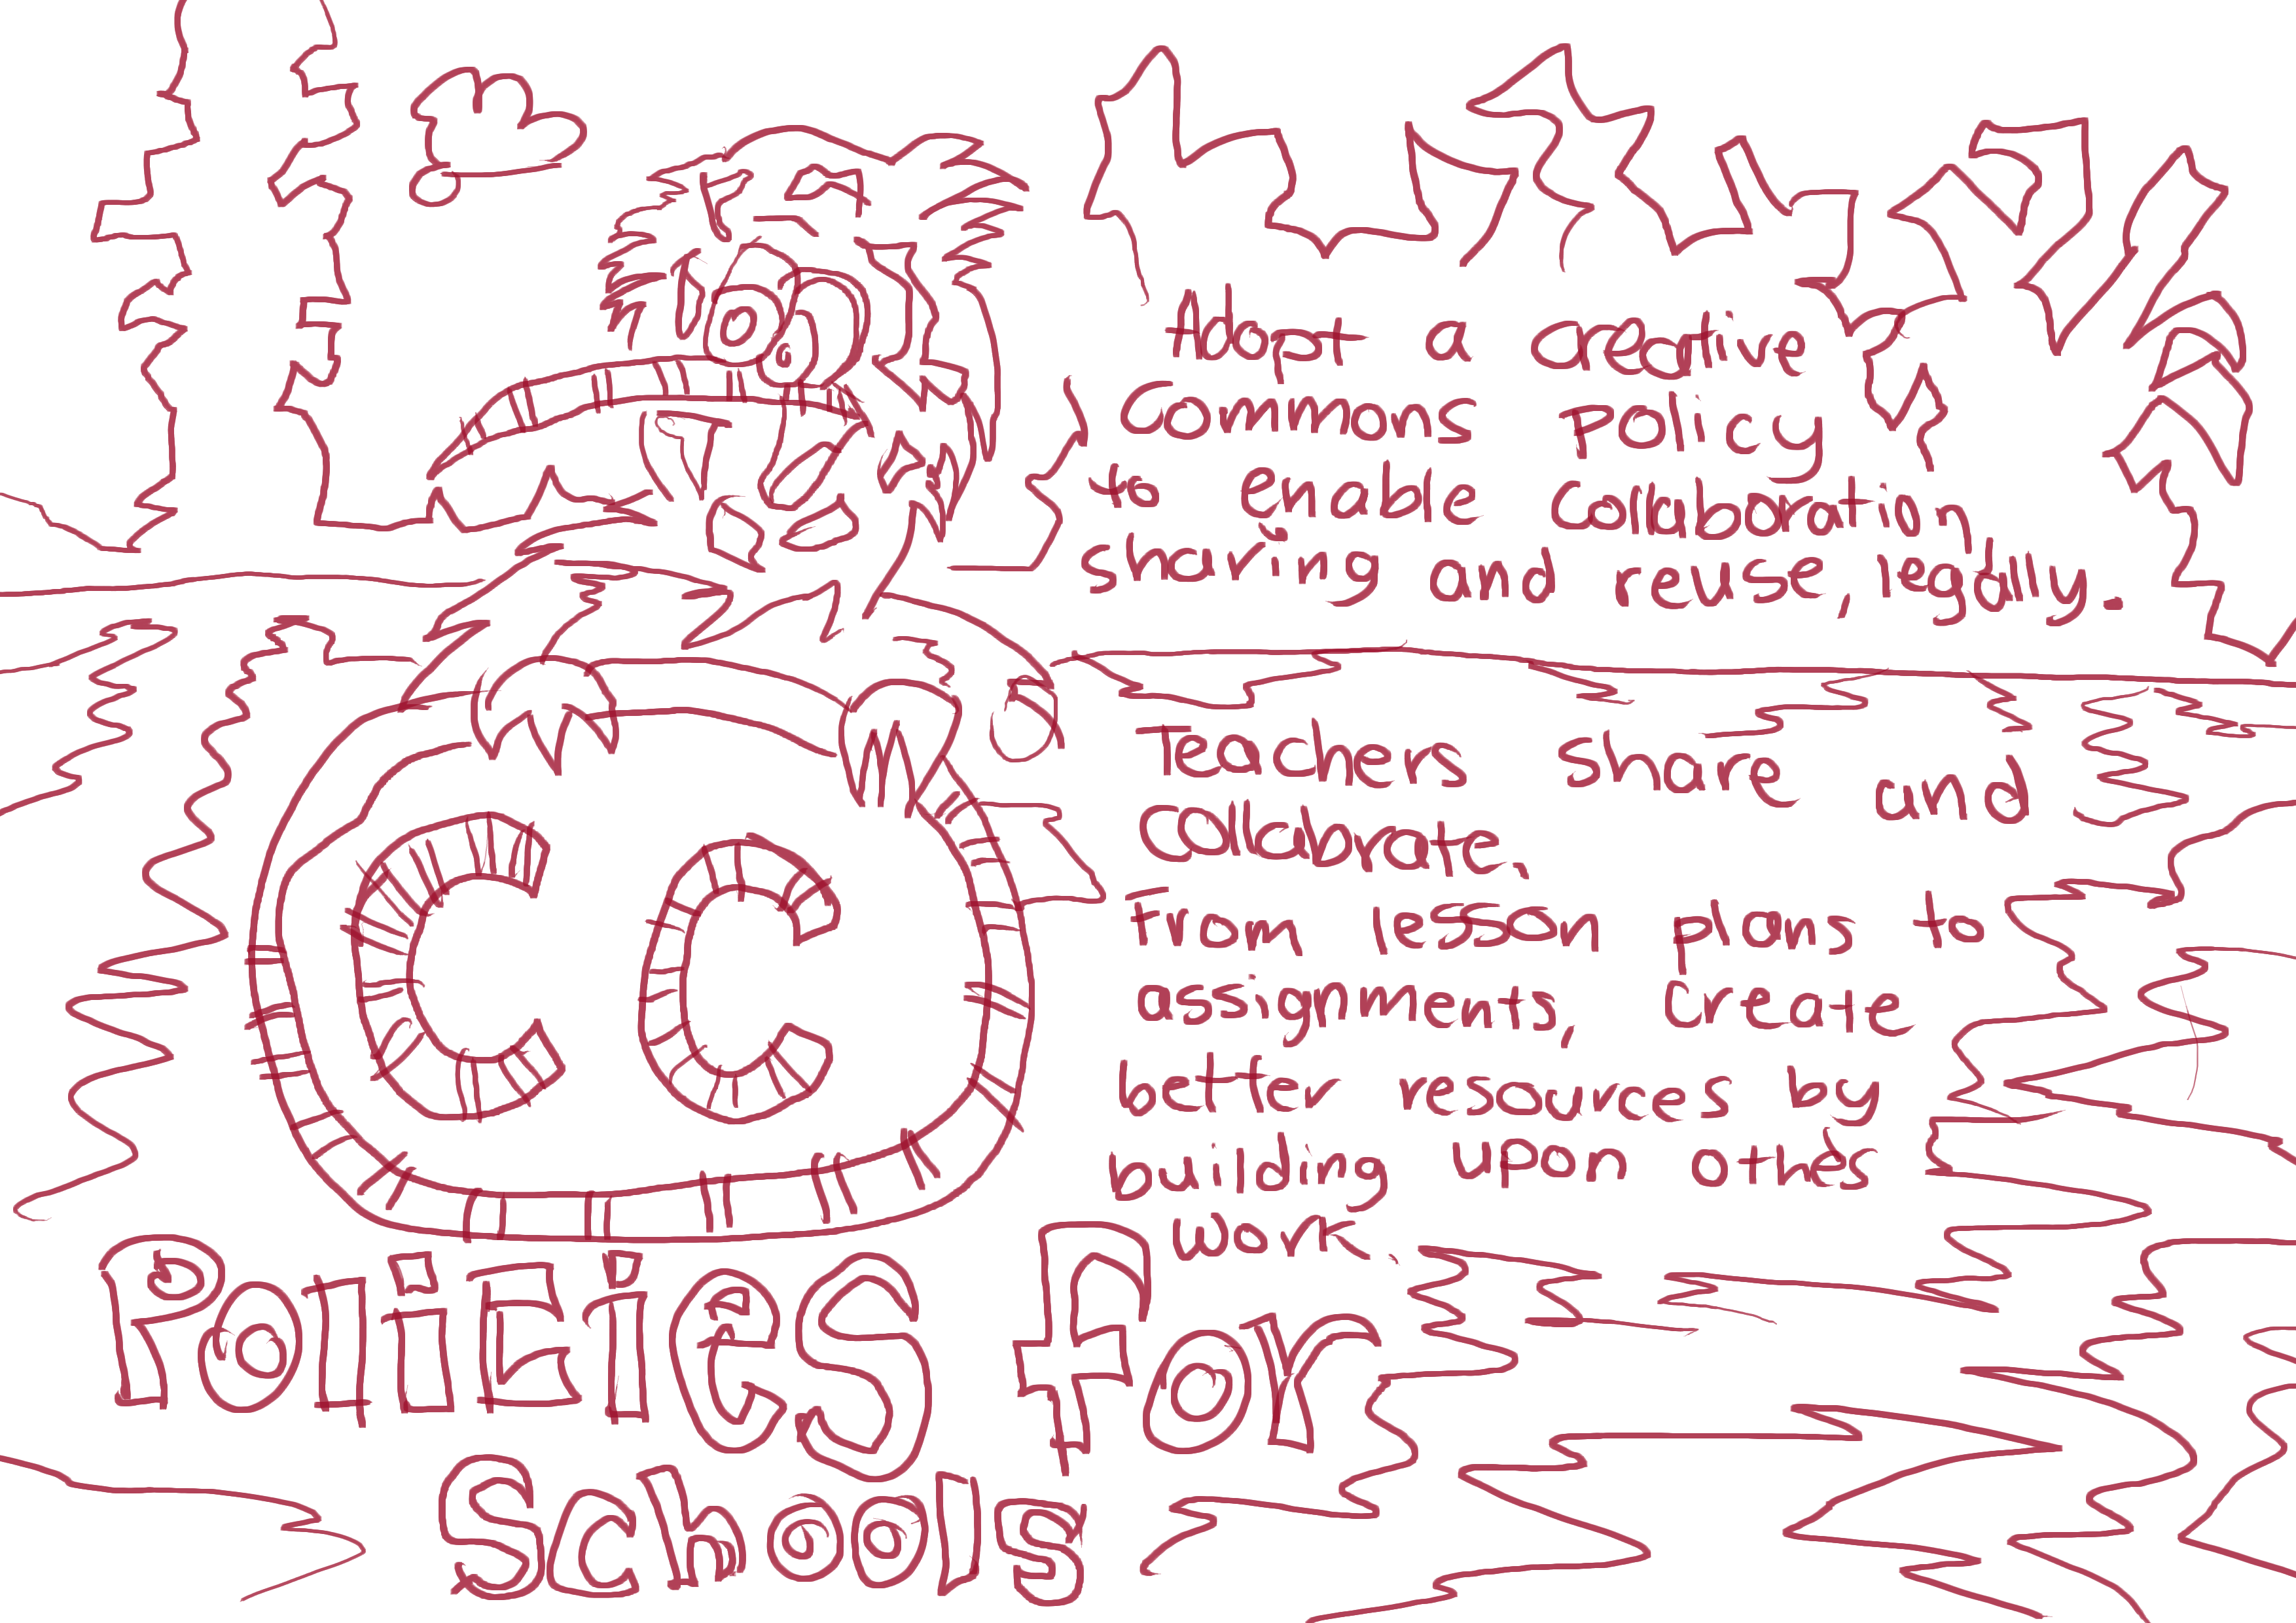 Adopt a creative
Commons Policy
to enable collaboration,
sharing and reuse, legally.
Teachers share and
collabrate.
From lesson plans to
assignments, create
better resources by
building upon othes
work.
CC
PoliciEs For
Schools